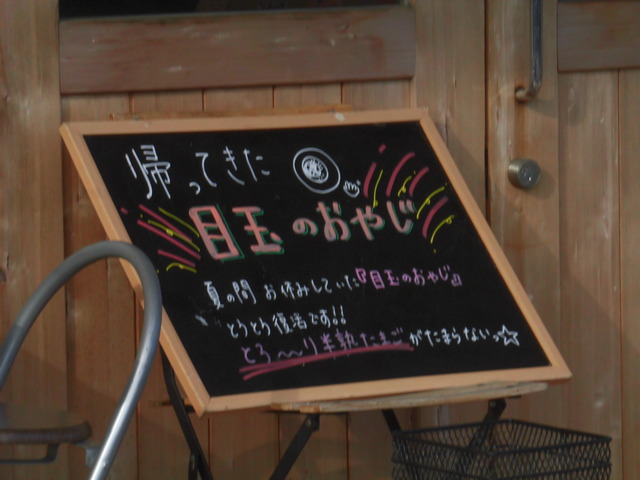 帰ってきた
目玉のおやじ
夏の間 お休みしていた『目玉のおやじ』
とうとう復活です!!
とろ〜〜り半熟たまごがたまらないっ☆